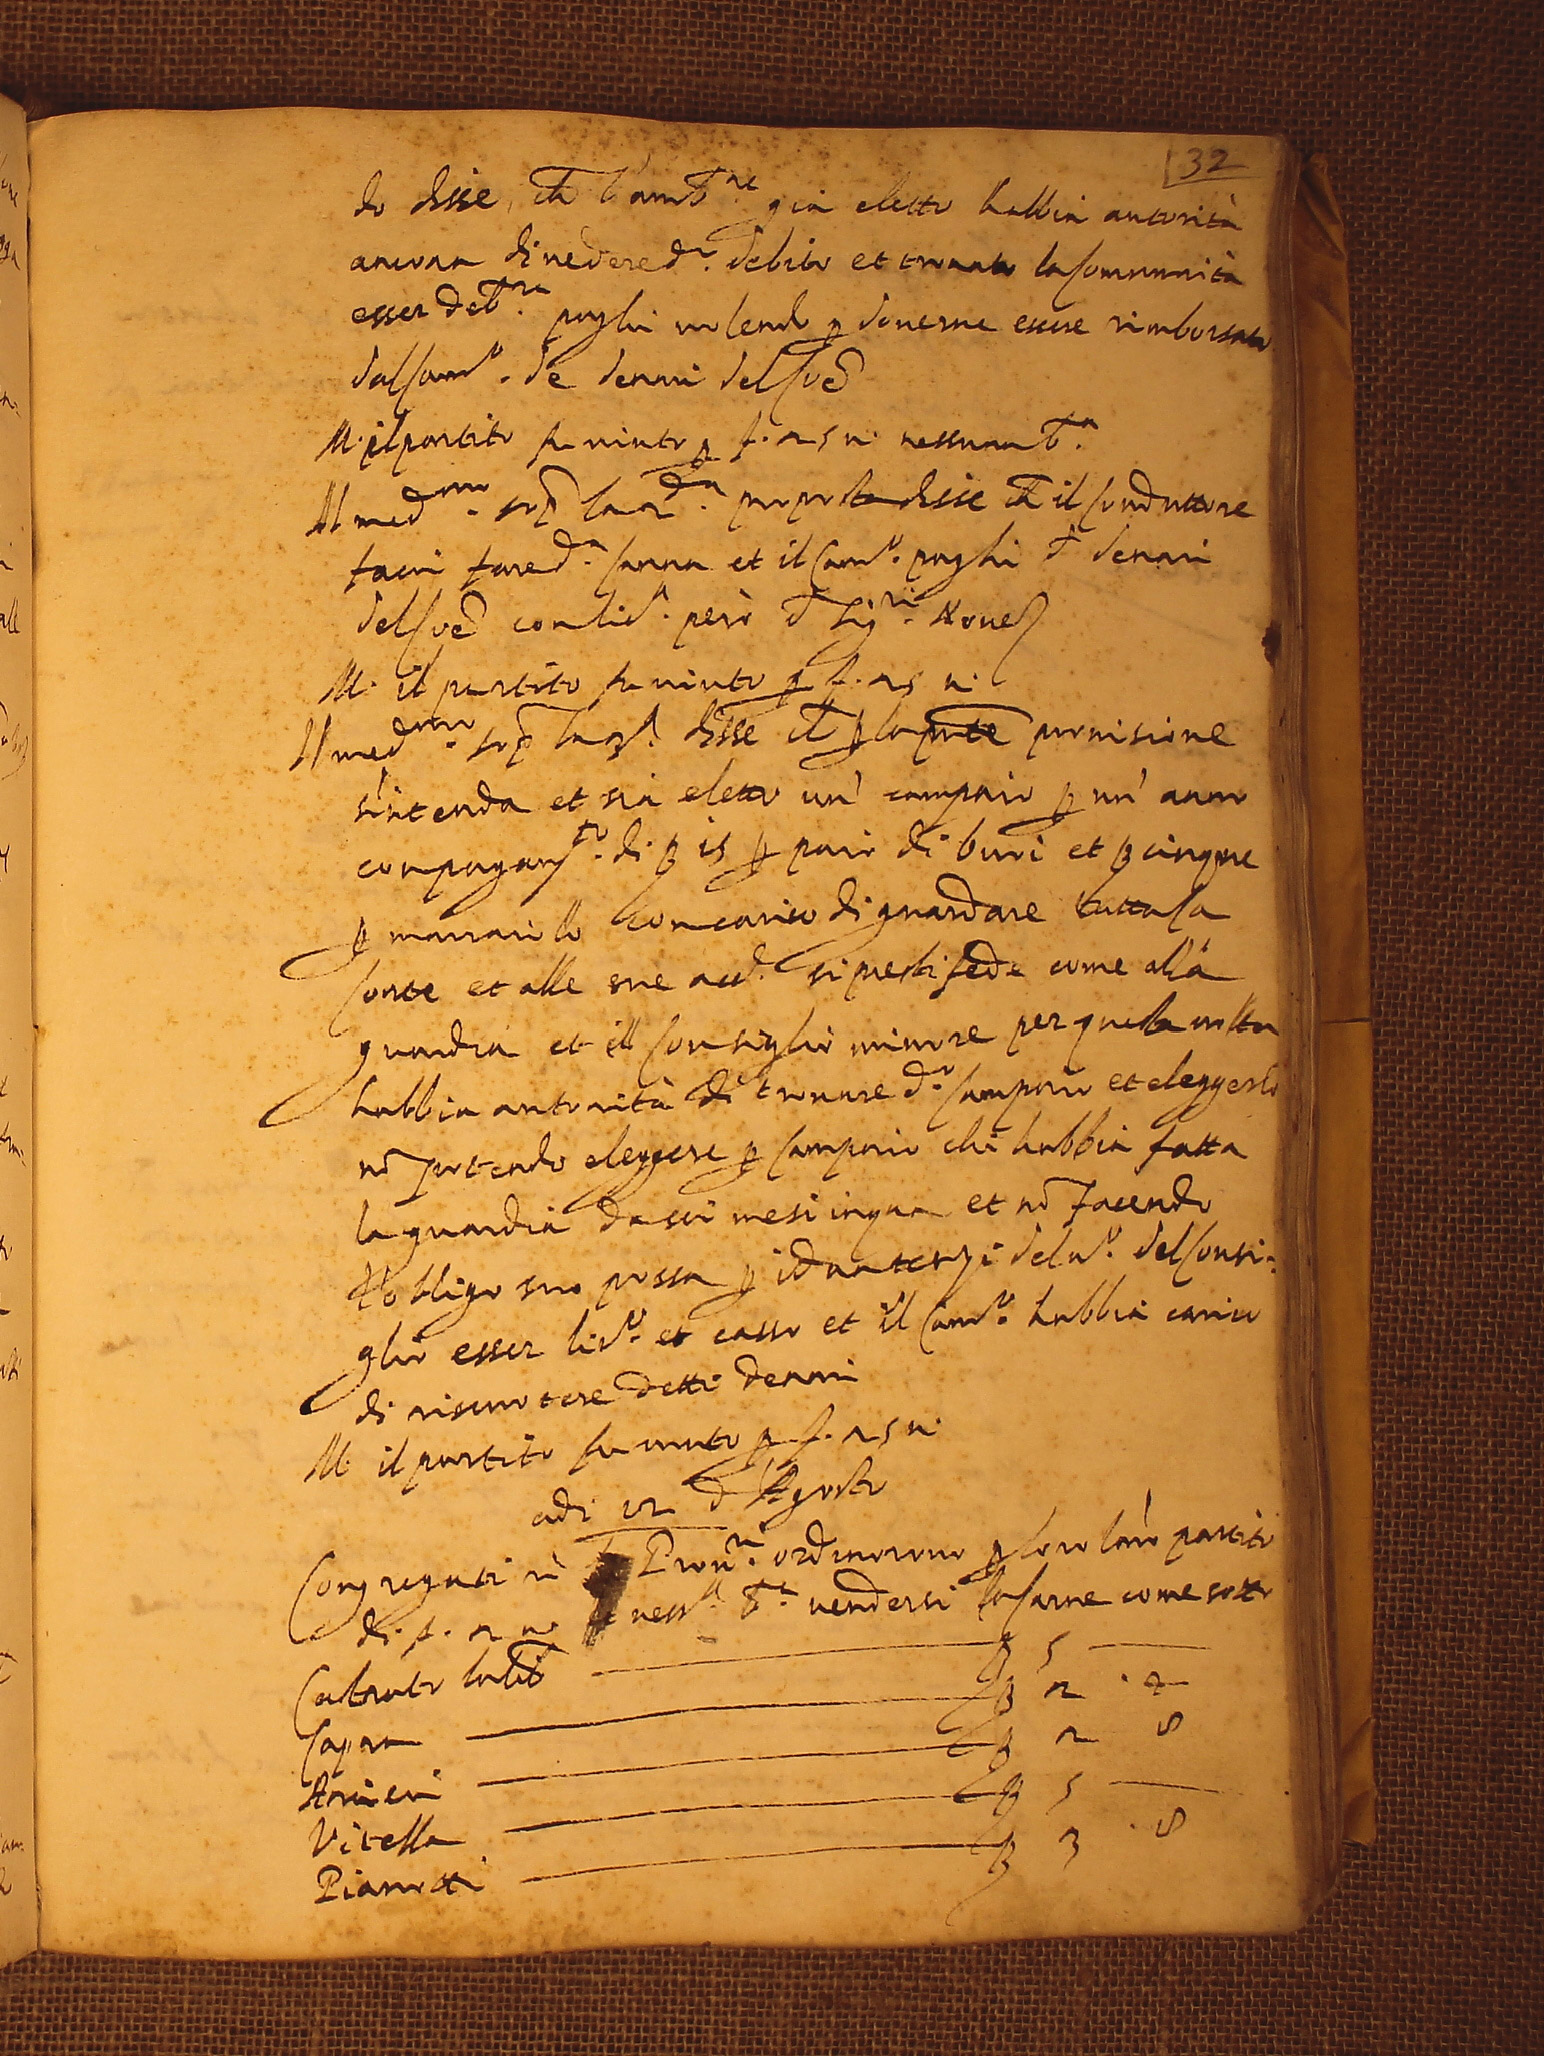 32
do disse, ch l'amb.re già eletto habbia autorità
ancora di vedere d.o debito et trovato la Comunità
esser deb.re paghi volendo p doverne essere rimborsato
dal Cam.o de denari del
M. il partito fu vinto p f. n. 5 n. nessuna
Il med.mo sop la 2.da proposta disse ch il Conduttore
facci fare d.a et il Cam.o paghi d denari
del con lic.a però d Sig.ri Nove
M. il partito fu vinto p f. n 5 n.
Il med.mo sop la 3.a disse ch p la pnte provisione
s'intenda et sia eletto un' campaio p un' anno
con pagam.to di 15 p paio di buoi et cinque
p marraiolo con carico di guardare tutta la
Corte et alle sue acc.e si presti fede come alla
guardia et il Consiglio minore per questa volta
habbia autorità di trovare d.o Campaio et eleggerlo
nō potendo eleggere p Campaio chi habbia fatta
la guardia da sei mesi in qua et nō facendo
l'obligo suo possa p i dua terzi del n.o del Consi-
glio esser lic.to et casso et il Cam.o habbia carico
di riscuotere detti denari
M. il partito fu vinto p f. n 5 n.
adi 12 d Agosto
Congregati n Priori ordinorono p loro partito
di f. n n. ness.a vendersi la Carne come sotto
Castrato 5
Capra 2 . 2
2 8
Vitella 5
3 . 8